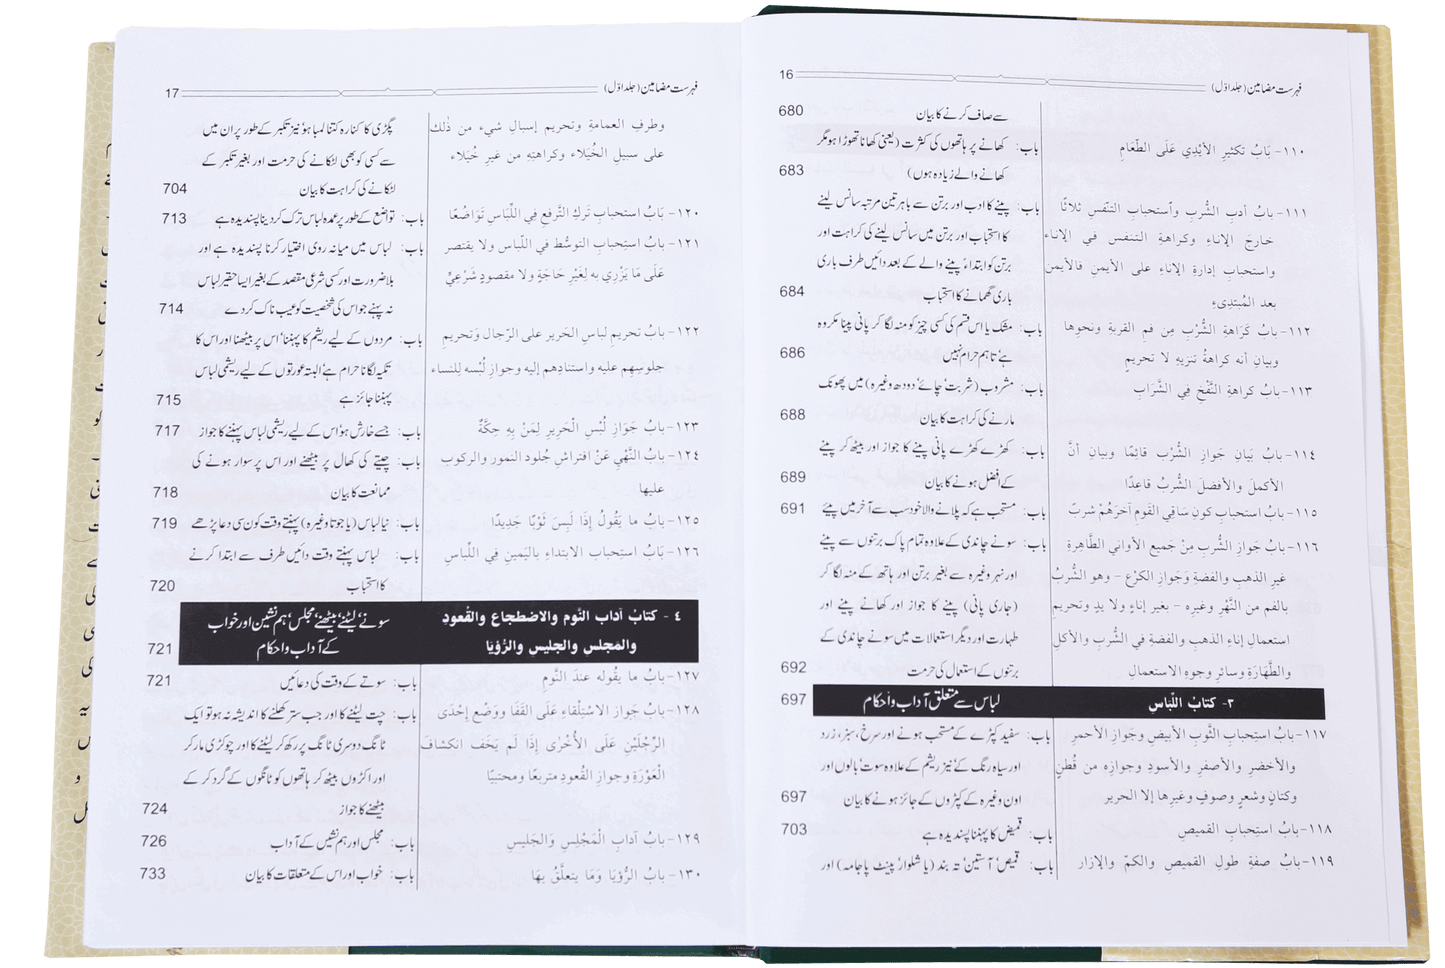 فہرست مضامین (جلد اوّل) 16
سے صاف کرنے کا بیان 680
١١٠- بَابُ تكثيرِ الأيْدِي عَلَى الطَّعَامِ باب: کھانے پر ہاتھوں کی کثرت (یعنی کھانا تھوڑا ہو مگر
کھانے والے زیادہ ہوں) 683
١١١- بابُ أدبِ الشُّربِ واستحبابِ التنفّسِ ثلاثًا باب: پینے کا ادب اور برتن سے باہر تین مرتبہ سانس لینے
خارجَ الإناءِ وكراهةِ التنفسِ في الإناءِ کا استحباب اور برتن میں سانس لینے کی کراہت اور
واستحبابِ إدارةِ الإناءِ على الأيمنِ فالأيمنِ برتن کو ابتداءً پینے والے کے بعد دائیں طرف باری
بعد المُبتدِىءِ باری گھمانے کا استحباب 684
١١٢- بابُ كَرَاهةِ الشُّرْبِ مِن فمِ القربةِ ونحوِها باب: مشک یا اس قسم کی کسی چیز کو منہ لگا کر پانی پینا مکروہ
وبيانِ أنه كراهةُ تنزيهٍ لا تحريمٍ ہے، تاہم حرام نہیں 686
١١٣- بابُ كراهةِ النَّفْخِ فِي الشَّرَابِ باب: مشروب (شربت، چائے، دودھ وغیرہ) میں پھونک
مارنے کی کراہت کا بیان 688
١١٤- بابُ بَيَانِ جَوازِ الشُّرْبِ قائِمًا وبيانِ أنَّ باب: کھڑے کھڑے پانی پینے کا جواز اور بیٹھ کر پینے
الأكملَ والأفضلَ الشُّربُ قاعِدًا کے افضل ہونے کا بیان 689
١١٥- بابُ استحبابِ كونِ سَاقِي القَومِ آخرَهُمْ شربًا باب: مستحب ہے کہ پلانے والا خود سب سے آخر میں پیئے 691
١١٦- بابُ جَوازِ الشُّربِ مِنْ جَميعِ الأواني الطَّاهِرةِ باب: سونے چاندی کے علاوہ تمام پاک برتنوں سے پینے
غيرِ الذهبِ والفضةِ وَجَوازِ الكرْعِ - وهو الشُّربُ اور نہر وغیرہ سے بغیر برتن اور ہاتھ کے منہ لگا کر
بالفمِ من النَّهْرِ وغيرِه - بغيرِ إناءٍ ولا يدٍ وتحريمِ (جاری پانی) پینے کا جواز اور کھانے پینے اور
استعمالِ إناءِ الذهبِ والفضةِ في الشُّربِ والأكلِ طہارت اور دیگر استعمالات میں سونے چاندی کے
والطَّهَارَةِ وسائرِ وجوهِ الاستعمالِ برتنوں کے استعمال کی حرمت 692
٣- كتابُ اللّباسِ لباس سے متعلق آداب و احکام 697
١١٧- بابُ استحبابِ الثَّوبِ الأبيضِ وجَوازِ الأحمرِ باب: سفید کپڑے کے مستحب ہونے اور سرخ، سبز، زرد
والأخضرِ والأصفرِ والأسودِ وجوازِه من قُطنٍ اور سیاہ رنگ کے، نیز ریشم کے علاوہ سوت، بالوں اور
وكتانٍ وشعرٍ وصوفٍ وغيرِها إلا الحريرِ اون وغیرہ کے کپڑوں کے جائز ہونے کا بیان 697
١١٨- بابُ استحبابِ القميصِ باب: قمیض کا پہننا پسندیدہ ہے 703
١١٩- بابُ صفةِ طولِ القَميصِ والكمّ والإزارِ باب: قمیص، آستین، تہ بند (یا شلوار، پینٹ پاجامہ) اور
فہرست مضامین (جلد اوّل) 17
وطرفِ العمامةِ وتحريمِ إسبالِ شيءٍ من ذٰلك پگڑی کا کنارہ کتنا لمبا ہو، نیز تکبر کے طور پر ان میں
على سبيلِ الخُيَلاءِ وكراهتِهِ من غيرِ خُيَلاءَ سے کسی کو بھی لٹکانے کی حرمت اور بغیر تکبر کے
لٹکانے کی کراہت کا بیان 704
١٢٠- بَابُ استحبابِ تَركِ التَّرفعِ فِي اللّبَاسِ تَوَاضُعًا باب: تواضع کے طور پر عمدہ لباس ترک کر دینا پسندیدہ ہے 713
١٢١- بابُ استِحبابِ التوسُّطِ في اللّباسِ ولا يقتصر باب: لباس میں میانہ روی اختیار کرنا پسندیدہ ہے اور
عَلَى مَا يَزْرِي به لِغَيْرِ حَاجَةٍ ولا مقصودٍ شَرْعِيٍّ بلا ضرورت اور کسی شرعی مقصد کے بغیر ایسا حقیر لباس
نہ پہنے جو اس کی شخصیت کو عیب ناک کر دے 714
١٢٢- بابُ تحريمِ لباسِ الحَريرِ على الرّجالِ وَتحريمِ باب: مردوں کے لیے ریشم کا پہننا، اس پر بیٹھنا اور اس کا
جلوسِهِم عليه واستنادِهِم إليه وجوازِ لُبْسه لِلنساء تکیہ لگانا حرام ہے، البتہ عورتوں کے لیے ریشمی لباس
پہننا جائز ہے 715
١٢٣- بابُ جَوَازِ لُبْسِ الْحَرِيرِ لِمَنْ بِهِ حِكَّةٌ باب: جسے خارش ہو، اس کے لیے ریشمی لباس پہننے کا جواز 717
١٢٤- بابُ النَّهْيِ عَنْ افتراشِ جُلودِ النمورِ والركوبِ باب: چیتے کی کھال پر بیٹھنے اور اس پر سوار ہونے کی
عليها ممانعت کا بیان 718
١٢٥- بابُ ما يَقُولُ إذَا لَبِسَ ثَوْبًا جَدِيدًا باب: نیا لباس (یا جوتا وغیرہ) پہنتے وقت کون سی دعا پڑھے 719
١٢٦- بَابُ استحبابِ الابتداءِ باليَمينِ فِي اللّباسِ باب: لباس پہنتے وقت دائیں طرف سے ابتدا کرنے
کا استحباب 720
٤- كتابُ آدابِ النَّومِ والاضطجاعِ والقُعودِ سونے، لیٹنے، بیٹھنے، مجلس، ہم نشین اور خواب
والمَجلسِ والجَليسِ والرُّؤيَا کے آداب و احکام 721
١٢٧- بابُ ما يقُوله عندَ النَّومِ باب: سوتے وقت کی دعائیں 721
١٢٨- بابُ جَوازِ الاسْتِلْقاءِ عَلَى القَفَا ووَضْعِ إحْدَى باب: چت لیٹنے کا اور جب ستر کھلنے کا اندیشہ نہ ہو تو ایک
الرِّجْلَيْنِ عَلَى الأُخْرَى إذَا لَم يَخَف انكشافَ ٹانگ دوسری ٹانگ پر رکھ کر لیٹنے کا اور چوکڑی مار کر
الْعَوْرَةِ وجوازِ القُعودِ متربعًا ومحتبيًا اور اکڑوں بیٹھ کر ہاتھوں کو ٹانگوں کے گرد کر کے
بیٹھنے کا جواز 724
١٢٩- بابُ آدابِ الْمَجْلِسِ وَالجَلِيسِ باب: مجلس اور ہم نشیں کے آداب 726
١٣٠- بابُ الرُّؤيَا وَمَا يتعلَّقُ بِهَا باب: خواب اور اس کے متعلقات کا بیان 733